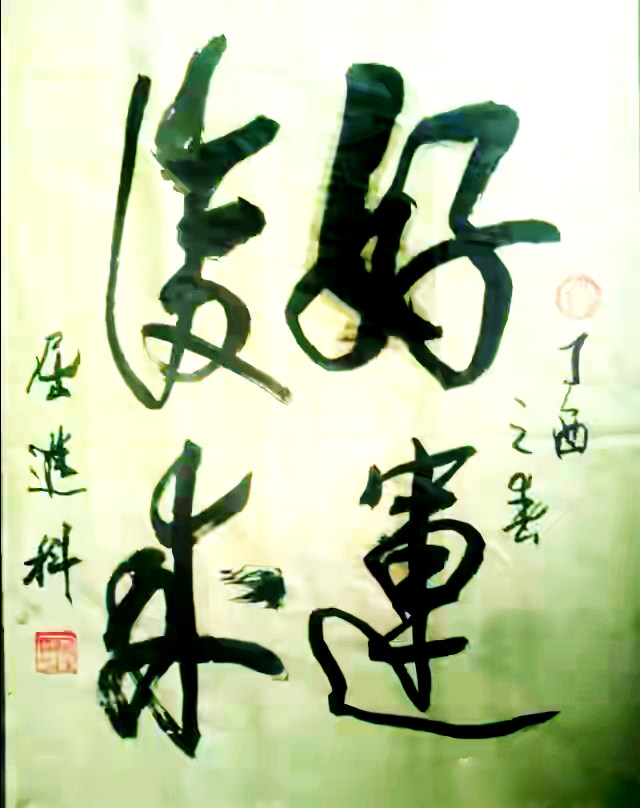 丁酉
之春
好運
後來
居進科